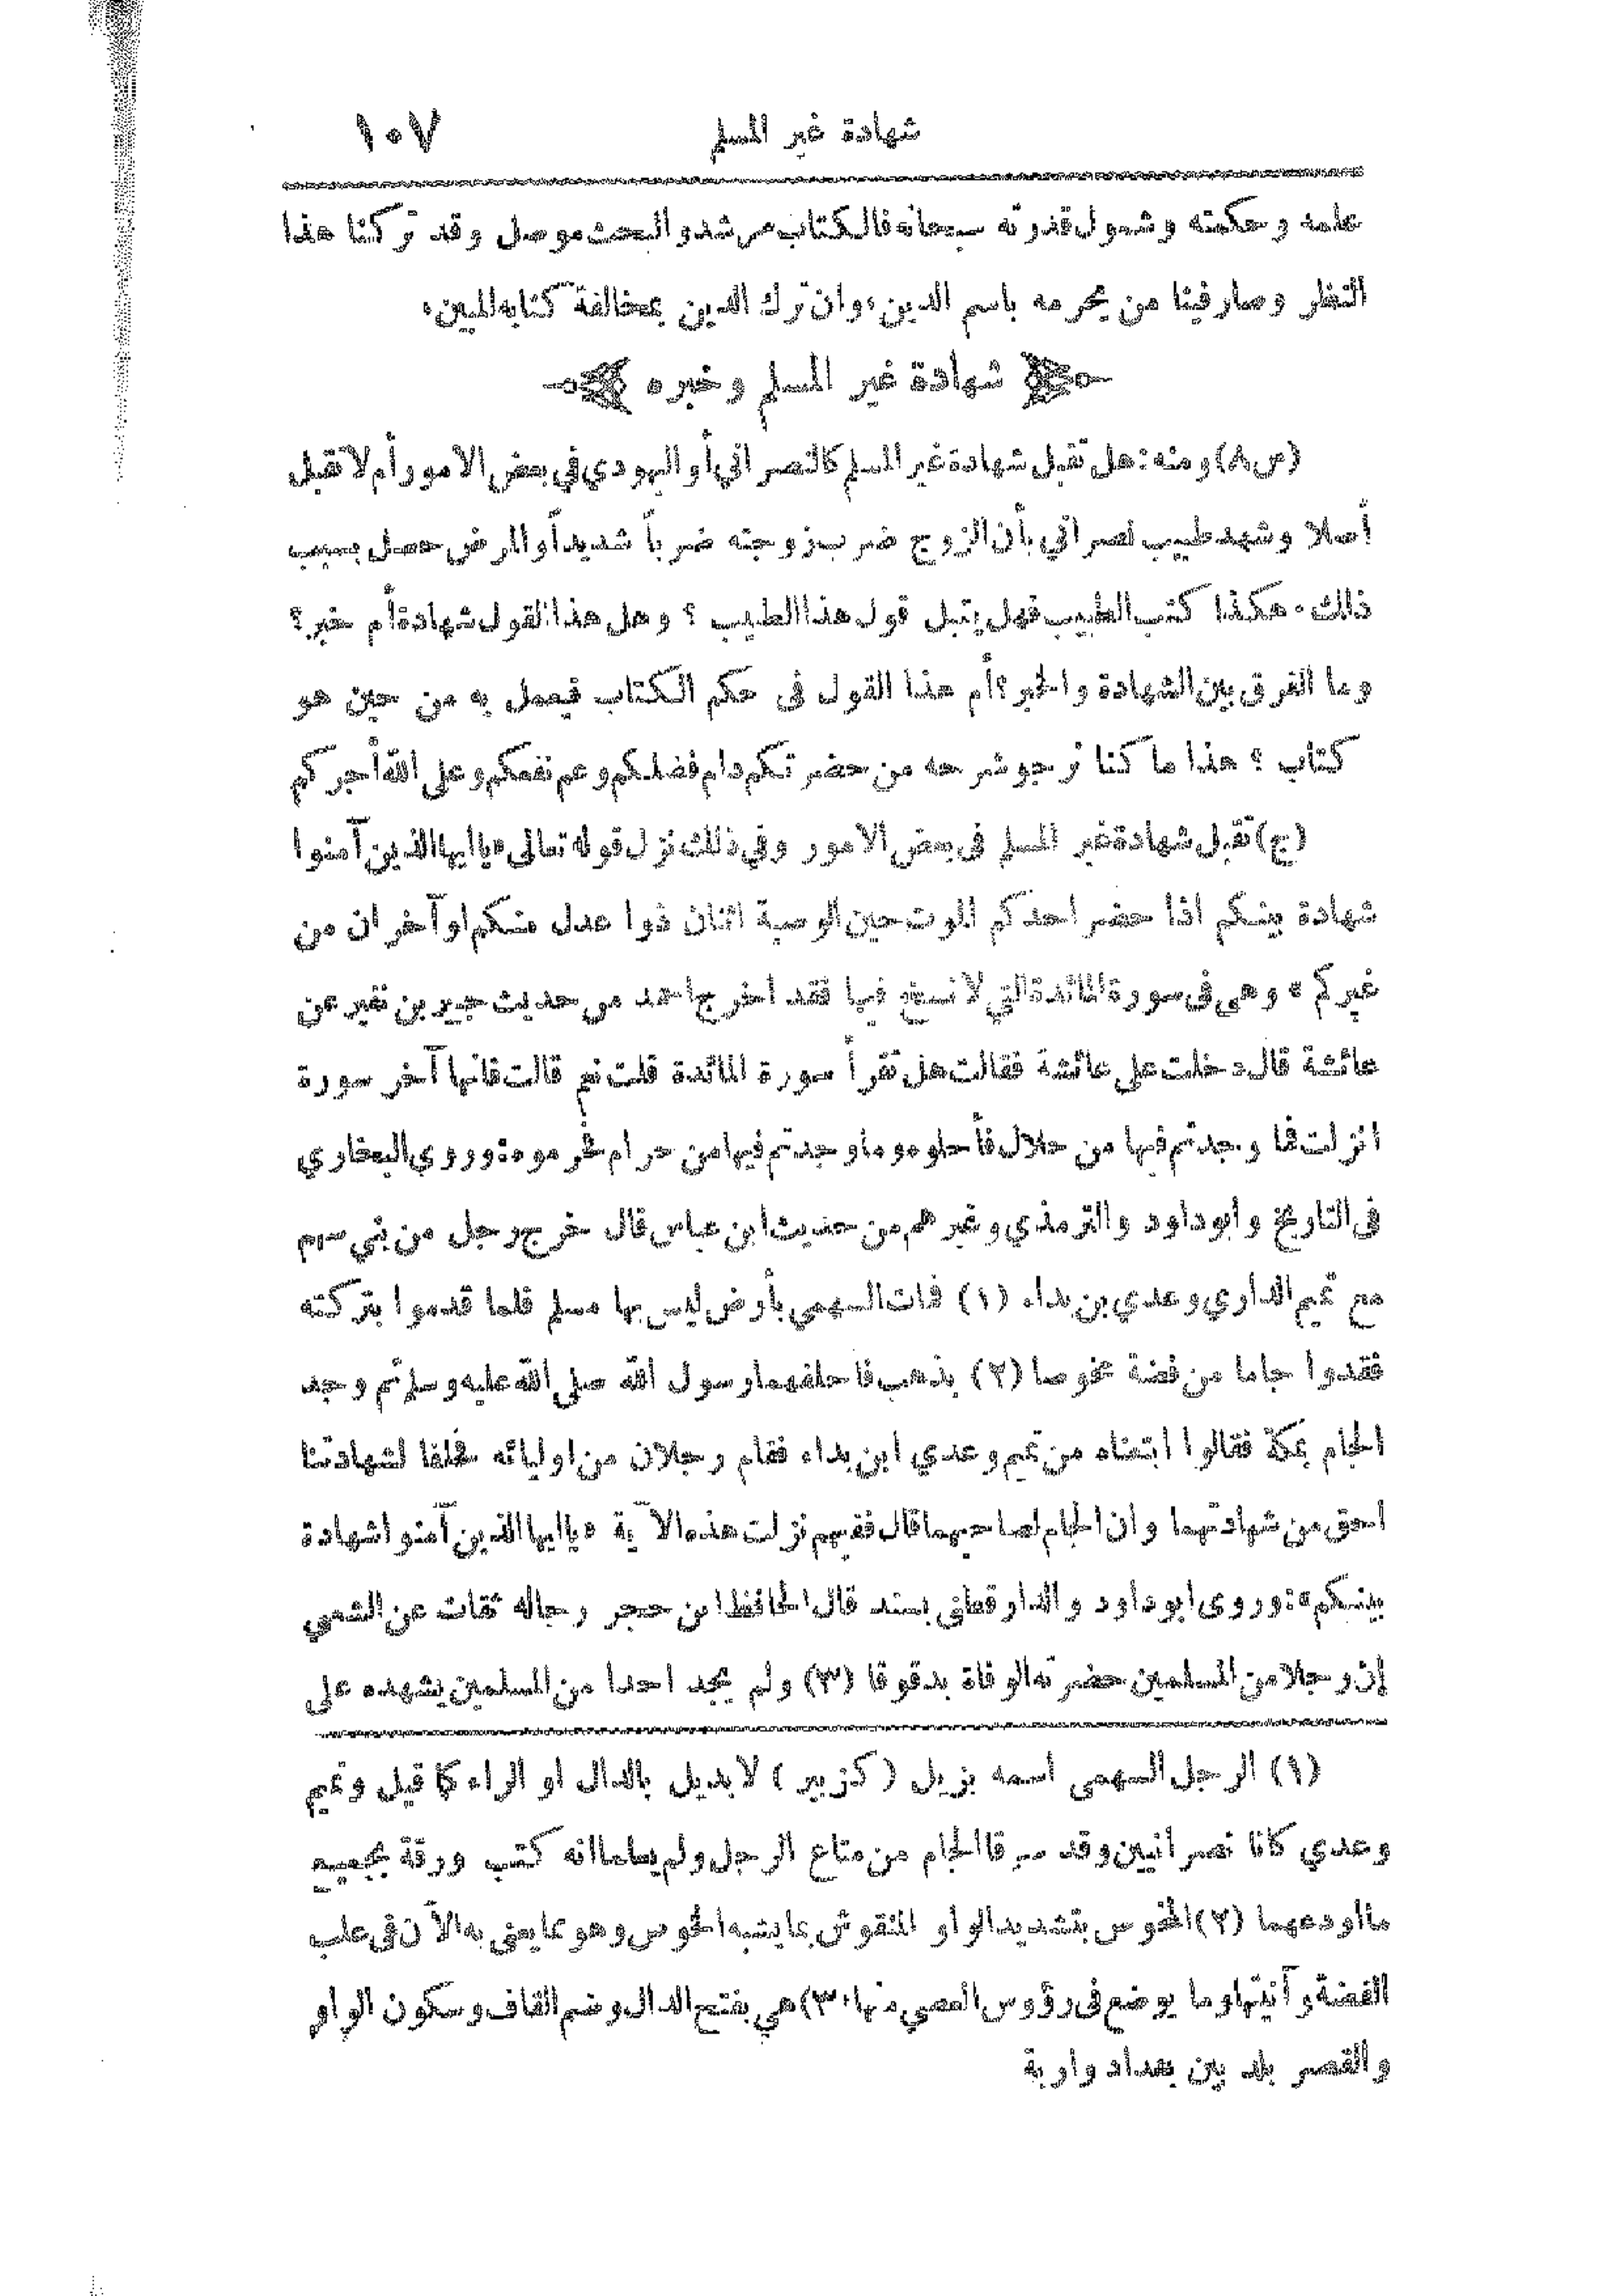 شهادة غير المسلم ١٠٧
علمه وحكمته وشمول قدرته سبحانه فالكتاب مرشد والبحث موصل وقد تركنا هذا
النظر وصار فينا من يحرمه باسم الدين، وان ترك الدين بمخالفة كتابه المبين،
شهادة غير المسلم وخبره
(س٨) ومنه: هل تقبل شهادة غير المسلم كالنصراني أو اليهودي في بعض الامور أم لا تقبل
أصلا وشهد طبيب نصراني بأن الزوج ضرب زوجته ضرباً شديداً والمرض حصل بسبب
ذلك. هكذا كتب الطبيب فهل يقبل قول هذا الطبيب؟ وهل هذا القول شهادة أم خبر؟
وما الفرق بين الشهادة والخبر؟ أم هذا القول فى حكم الكتاب فيعمل به من حين هو
كتاب؟ هذا ما كنا نرجو شرحه من حضرتكم دام فضلكم وعم نفعكم وعلى الله أجركم
(ج) تقبل شهادة غير المسلم فى بعض الامور وفي ذلك نزل قوله تعالى «يا ايها الذين آمنوا
شهادة بينكم اذا حضر احدكم الموت حين الوصية اثنان ذوا عدل منكم او آخران من
غيركم» وهى فى سورة المائدة التي لا نسخ فيها فقد اخرج احمد من حديث جبير بن نفير عن
عائشة قال دخلت على عائشة فقالت هل تقرأ سورة المائدة قلت نعم قالت فانها آخر سورة
انزلت فما وجدتم فيها من حلال فأحلوه وما وجدتم فيها من حرام فحرموه: وروي البخاري
فى التاريخ وابو داود والترمذي وغيرهم من حديث ابن عباس قال خرج رجل من بني سهم
مع تميم الداري وعدي بن بداء (١) فمات السهمي بأرض ليس بها مسلم فلما قدموا بتركته
فقدوا جاما من فضة مخوصا (٢) بذهب فاحلفهما رسول الله صلى الله عليه وسلم ثم وجد
الجام بمكة فقالوا ابتعناه من تميم وعدي ابن بداء فقام رجلان من اوليائه فحلفا لشهادتنا
احق من شهادتهما وان الجام لصاحبهما قال ففيهم نزلت هذه الآية «يا ايها الذين آمنوا شهادة
بينكم»: وروى ابو داود والدارقطنى بسند قال الحافظ ابن حجر رجاله ثقات عن الشعبي
إن رجلا من المسلمين حضرته الوفاة بدقوقا (٣) ولم يجد احدا من المسلمين يشهده على
(١) الرجل السهمى اسمه بزيل (كزبير) لا بديل بالدال او الراء كما قيل وتميم
وعدي كانا نصرانيين وقد سرقا الجام من متاع الرجل ولم يعلما انه كتب ورقة بجميع
ما اودعهما (٢) المخوس بتشديد الواو المنقوش بما يشبه الخوس وهو ما يعنى به الآن فى علب
الفضة وآنيتها وما يوضع فى رؤوس العصي منها (٣) هي بفتح الدال وضم القاف وسكون الواو
والقصر بلد بين بغداد واربة